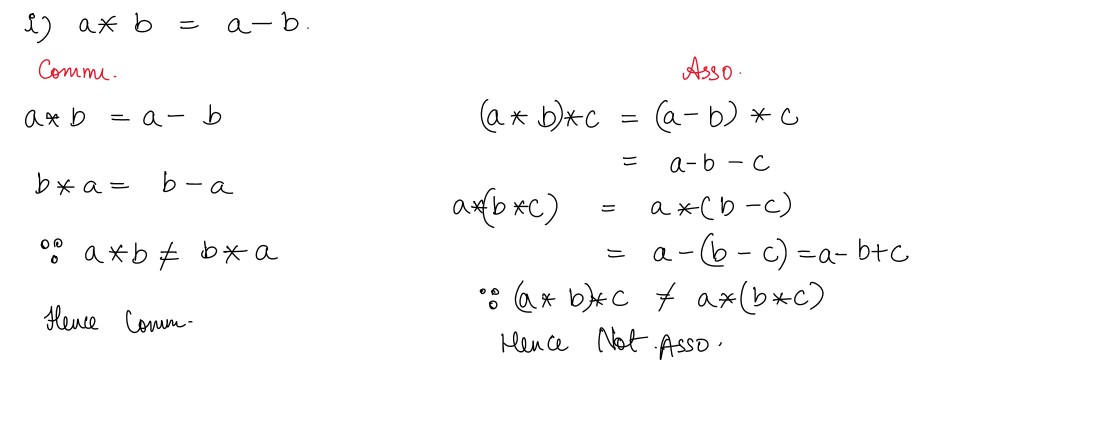 i) a * b = a - b.
Comm.
a * b = a - b
b * a = b - a
∵ a * b ≠ b * a
Hence Comm.
Asso.
(a * b) * c = (a - b) * c
= a - b - c
a * (b * c) = a * (b - c)
= a - (b - c) = a - b + c
∵ (a * b) * c ≠ a * (b * c)
Hence Not Asso.